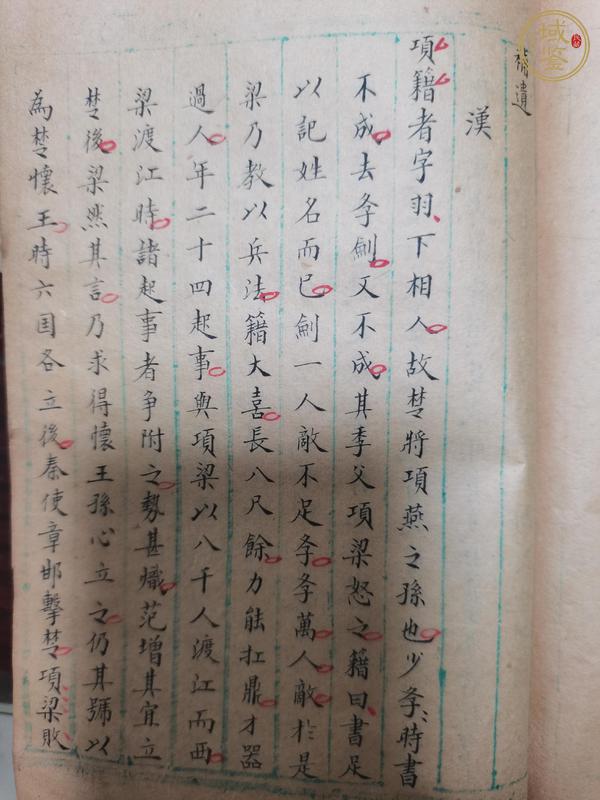 補遺
漢
項籍者字羽下相人故楚將項燕之孫也少孝時書
不成去孝劍又不成其季父項梁怒之籍曰書足
以記姓名而已劍一人敵不足孝孝萬人敵於是
梁乃教以兵法籍大喜長八尺餘力能扛鼎才器
過人年二十四起事與項梁以八千人渡江而西
梁渡江時諸起事者爭附之勢甚熾范增其宜立
楚後梁然其言乃求得懷王孫心立之仍其號以
為楚懷王時六国各立後秦使章邯擊楚項梁敗